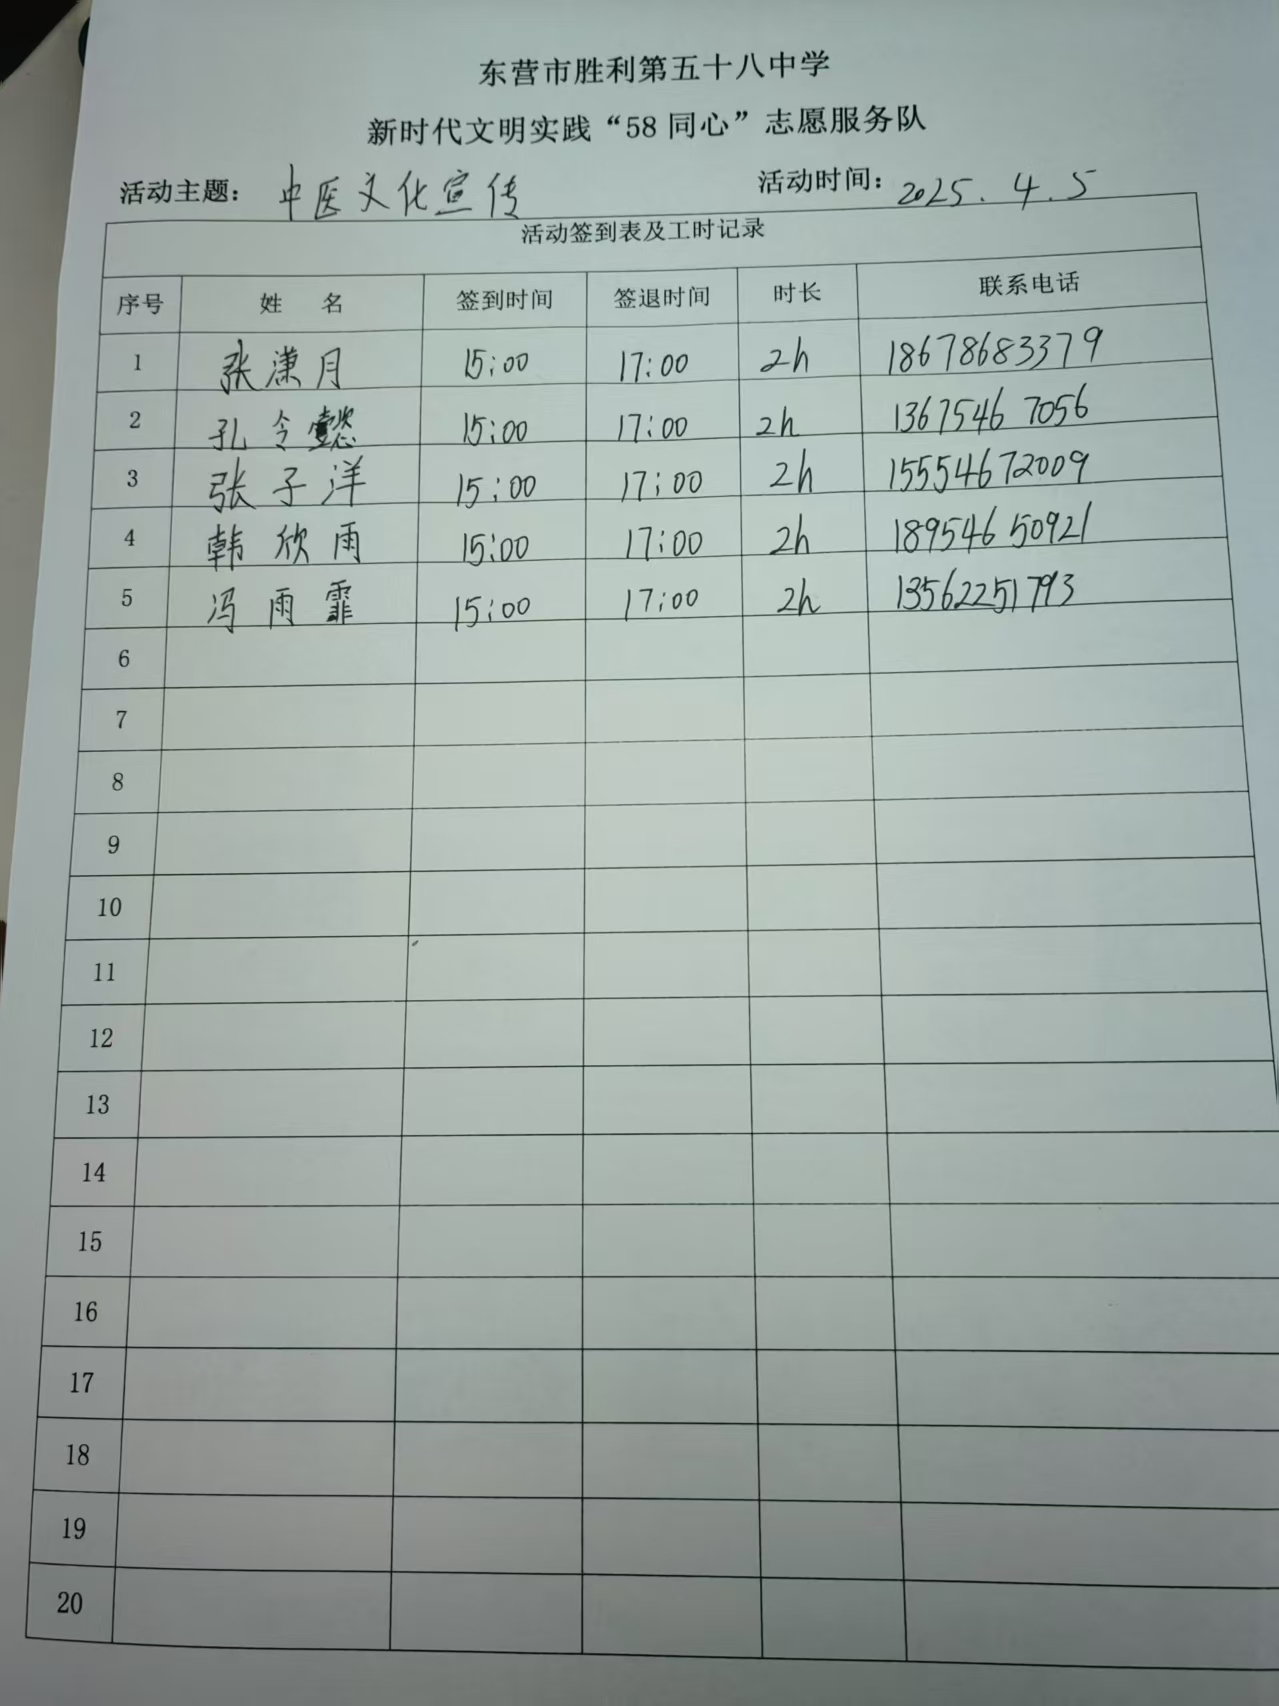 东营市胜利第五十八中学
新时代文明实践“58同心”志愿服务队
活动主题：中医文化宣传 活动时间：2025.4.5
活动签到表及工时记录
序号 姓 名 签到时间 签退时间 时长 联系电话
1 张潇月 15:00 17:00 2h 18678683379
2 孔令懿 15:00 17:00 2h 13675467056
3 张子洋 15:00 17:00 2h 15554672009
4 韩欣雨 15:00 17:00 2h 18954650921
5 冯雨霏 15:00 17:00 2h 13562251793
6
7
8
9
10
11
12
13
14
15
16
17
18
19
20